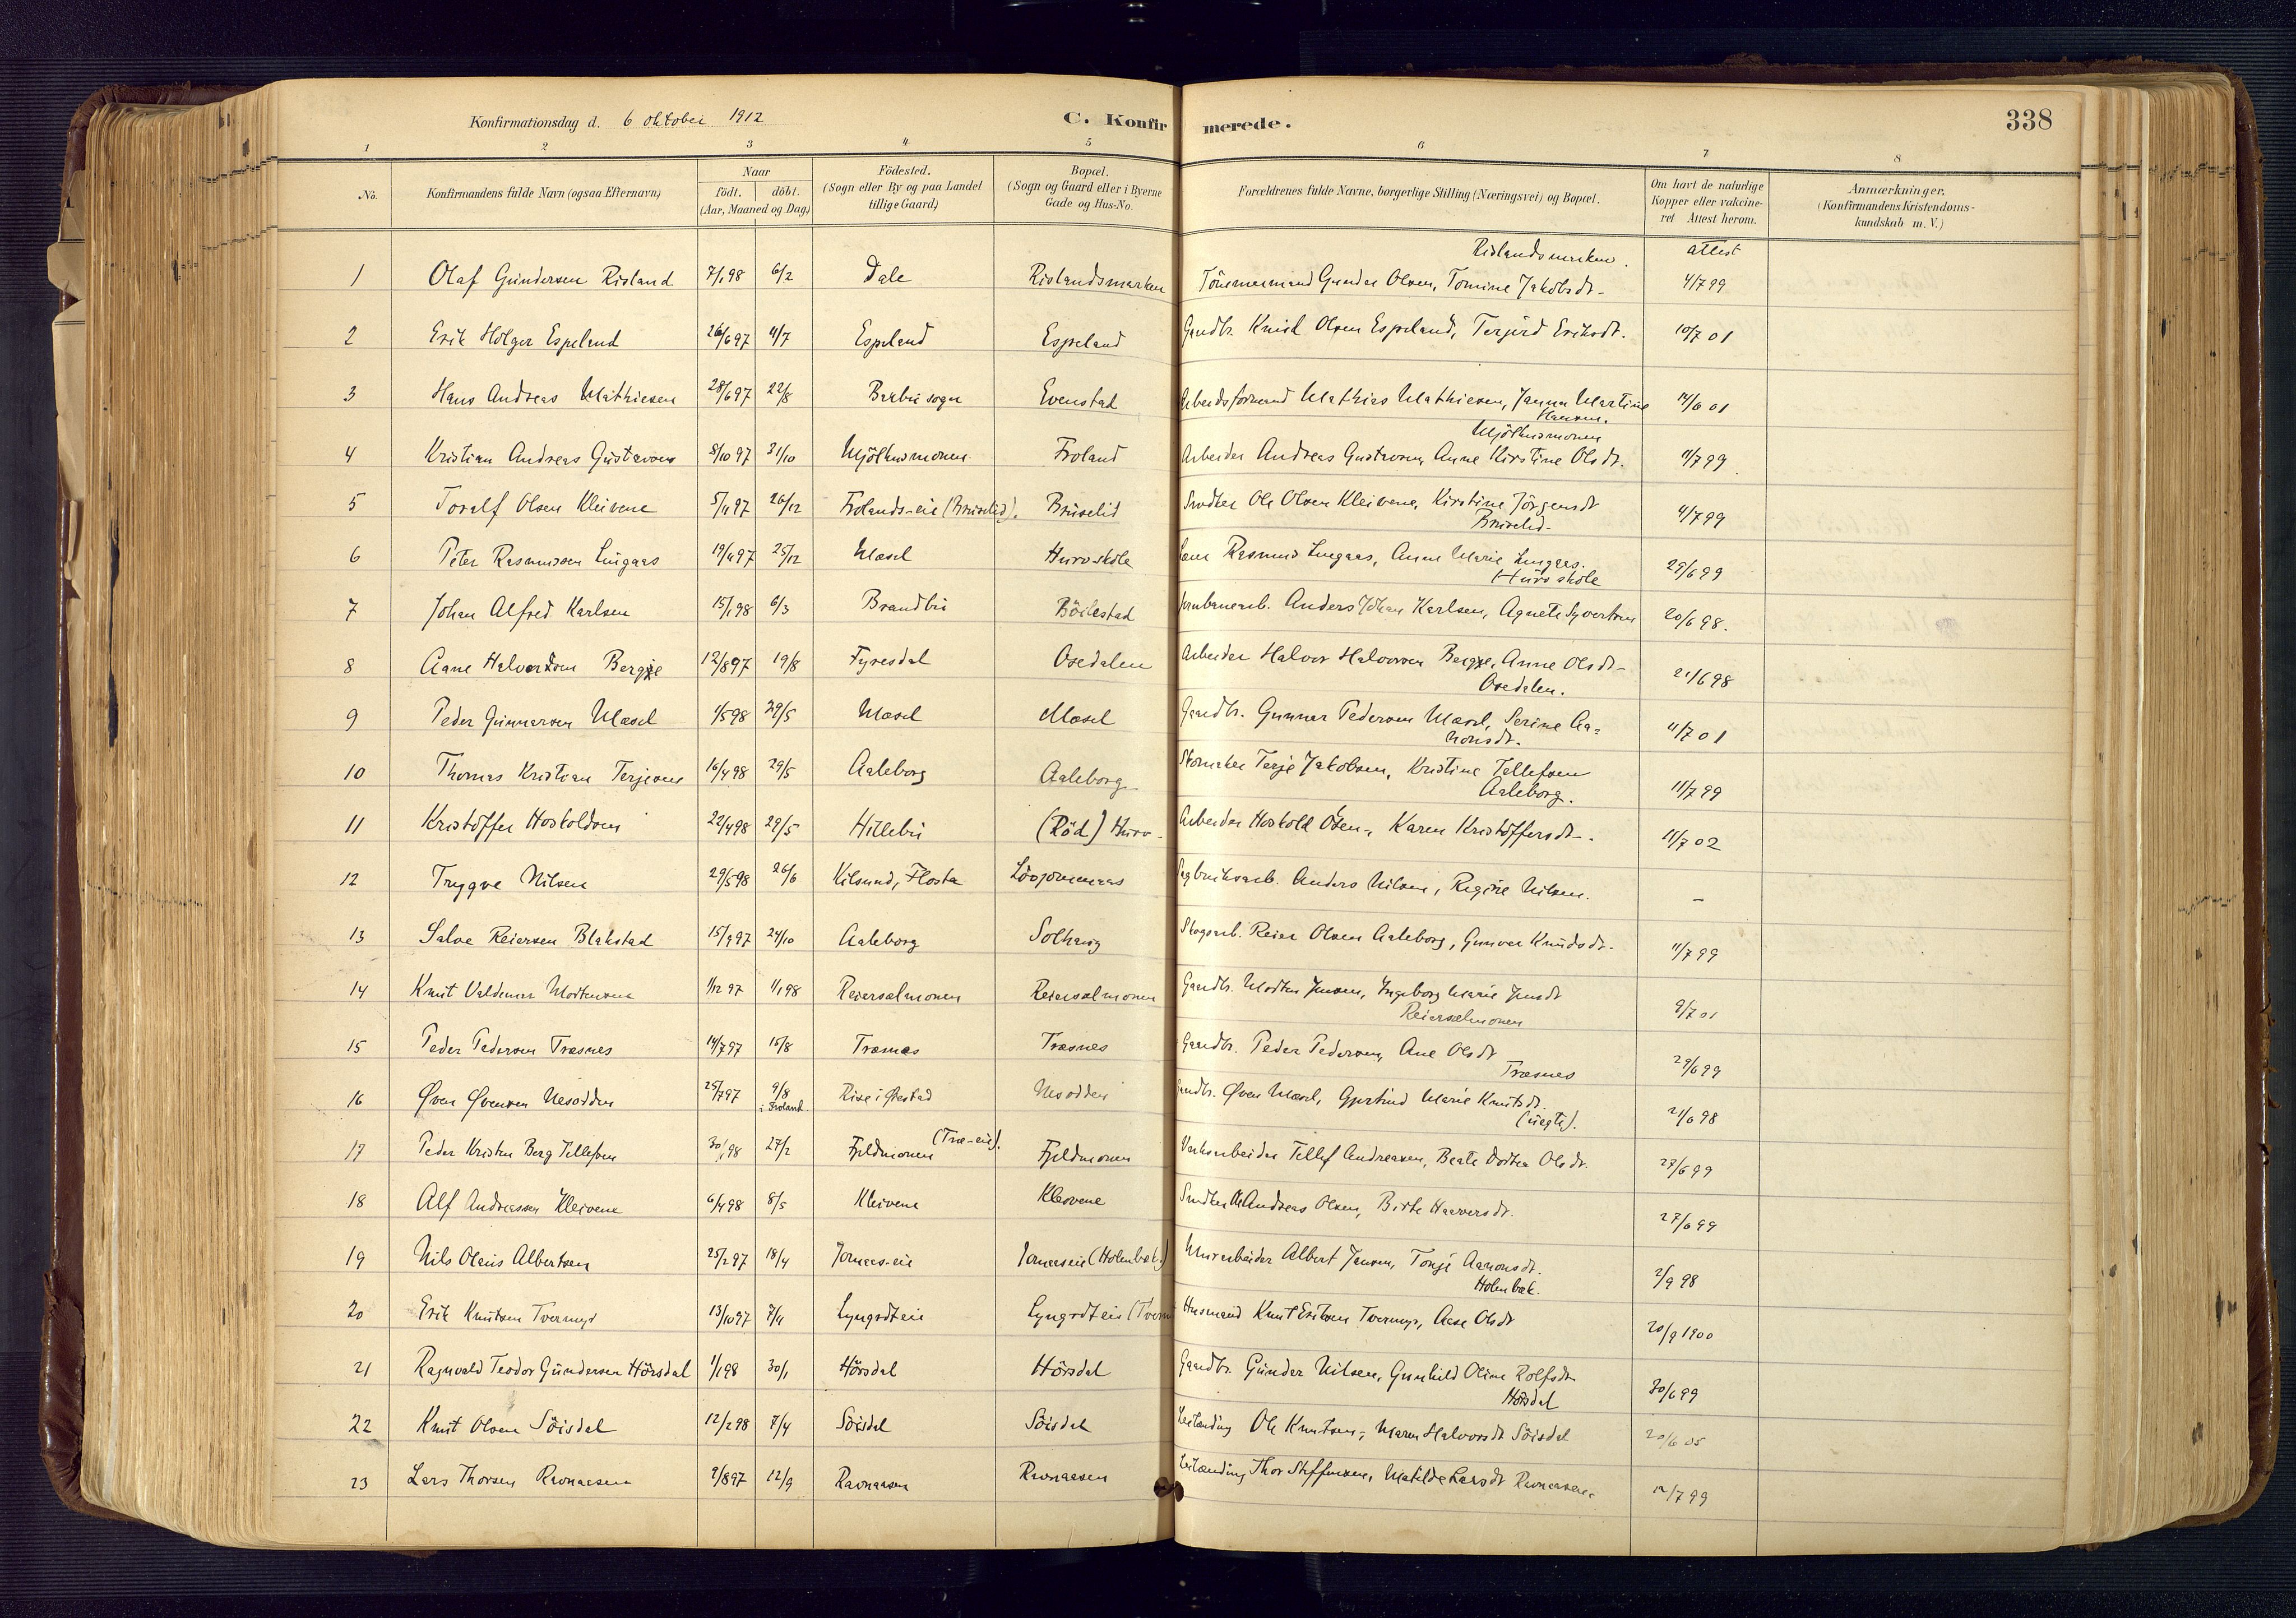 Konfirmationsdag d. 6 oktober 1912
C. Konfirmerede.
338
1 2 3 4 5 6 7 8
No. Konfirmandens fulde Navn (ogsaa Efternavn) Naar födt. döbt. (Aar, Maaned og Dag) Födested. (Sogn eller By og paa Landet tillige Gaard) Bopæl. (Sogn og Gaard eller i Byerne Gade og Hus-No. Forældrenes fulde Navne, borgerlige Stilling (Næringsvei) og Bopæl. Om havt de naturlige Kopper eller vakcineret Attest herom. Anmærkninger. (Konfirmandens Kristendomskundskab m. V.)
Rislandsmarken. attest
1 Olaf Gundersen Risland 7/1 98 6/2 Dale Rislandsmarken Tömmermand Gunder Olsen, Tomine Jakobsdt. 4/7 99
2 Erik Holger Espeland 26/6 97 4/7 Espeland Espeland Gaardbr. Knud Olsen Espeland, Terjerd Eriksdt. 10/7 01
3 Hans Andreas Mathiesen 28/6 97 22/8 Barbu sogn Evenstad Arbeidsformand Mathias Mathiesen, Janna Martine 14/6 01
Hansen.
Mjölhusmonen
4 Kristian Andreas Gustavsen 8/10 97 31/10 Mjölhusmonen Froland Arbeider Andreas Gustavsen, Anne Kirstine Olsdt. 11/7 99
5 Toralf Olsen Kleivene 5/11 97 26/12 Frolands-eie (Bruselid). Bruselid Snedker Ole Olsen Kleivene, Kirstine Jörgensdt 4/7 99
Bruselid.
6 Peter Rasmussen Lingaas 19/11 97 25/12 Mæsel Hurv skole Lærer Rasmus Lingaas, Anne Marie Lingaas. 29/6 99
Hurv skole
7 Johan Alfred Karlsen 15/1 98 6/3 Brandbu Böilestad Jernbanearb. Anders Johan Karlsen, Agnete Syvertsen 20/6 98.
8 Aane Halvorsen Bergje 12/8 97 19/8 Fyresdal Osedalen Arbeider Halvor Halvorsen Bergje, Anne Olsdt 21/6 98
Osedalen.
9 Peder Gunnarsen Mæsel 1/5 98 29/5 Mæsel Mæsel Gaardbr. Gunnar Pedersen Mæsel, Serine Aa= 11/7 01
ronsdt.
10 Thomas Kristian Terjesen 16/4 98 29/5 Aaleborg Aaleborg Skomaker Terje Jakobsen, Kristine Tellefsen 11/7 99
Aaleborg.
11 Kristoffer Hoskoldsen 22/4 98 29/5 Hillebu (Röd) Hurv Arbeider Hoskold Olsen, Karen Kristoffersdt. 11/7 02
12 Trygve Nilsen 29/5 98 26/6 Kilsund, Flosta Lövjomaas Sagbruksarb. Anders Nilsen, Regine Nilsen. –
13 Salve Reiersen Blakstad 15/9 97 24/10 Aaleborg Solhaug Skogsarb. Reier Olsen Aaleborg, Gunvor Knudsdt. 11/7 99
14 Knut Valdemar Mortensen 1/12 97 1/1 98 Reiersølmonen Reiersølmonen Gaardbr. Morten Jensen, Ingeborg Marie Jensdt 9/7 01
Reiersølmonen
15 Peder Pedersen Træsnes 14/7 97 15/8 Træsnes Træsnes Gaardbr. Peder Pedersen, Ane Olsdt 29/6 99
Træsnes
16 Øven Øvensen Nesodden 25/7 97 9/8 i Froland Rise i Øiestad Nesodden Gaardbr. Øven Mæsel, Gjertrud Marie Knutsdt. 21/6 98
(uegte).
17 Peder Kristen Berg Tellefsen 30/1 98 27/2 Fjeldmonen (Træ-eie). Fjeldmonen Verksarbeider Tellef Andreasen, Beate Dortea Olsdt. 27/6 99
18 Alf Andreassen Kleivene 6/4 98 8/5 Kleivene Kleivene Snedker Andreas Olsen, Birte Haaversdt. 27/6 99
19 Nils Olaus Albertsen 25/2 97 18/4 Jomaas-eie Jomaaseie (Holmbæk) Murarbeider Albert Jensen, Tonje Aaronsdt. 2/9 98
Holmbæk.
20 Erik Knutsen Tvermyr 13/10 97 7/11 Lyngrdteie Lyngrdteie (Tverm Husmand Knut Eriksen Tvermyr, Aase Olsdt 20/9 1900
21 Ragnvald Teodor Gundersen Hörsdal 1/1 98 30/1 Hörsdal Hörsdal Gaardbr. Gunder Nilsen, Gunhild Oline Rolfsdt 30/6 99
Hörsdal
22 Knut Olsen Söisdal 12/2 98 7/4 Söisdal Söisdal Leilænding Ole Knutsen, Maren Halvorsdt Söisdal 20/6 05
23 Lars Thorsen Ravnaasen 9/8 97 12/9 Ravnaasen Ravnaasen Leilænding Thor Steffensen, Matilde Larsdt Ravnaasen. 12/7 99